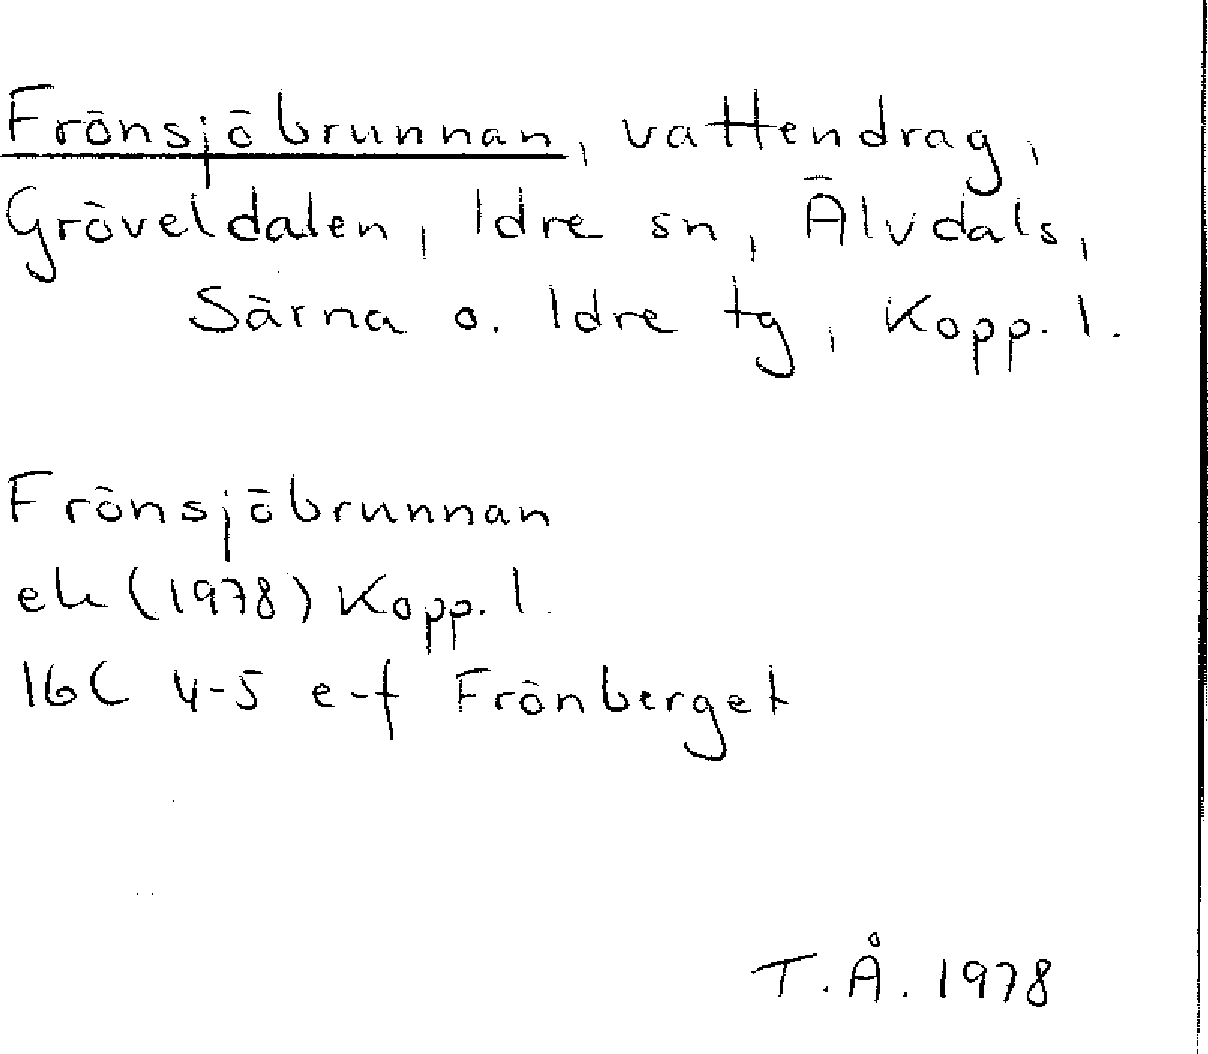 Frönsjöbrunnan, vattendrag,
Gröveldalen, Idre sn, Älvdals,
Särna o. Idre tg, Kopp. l.
Frönsjöbrunnan
ek (1978) Kopp. l.
16C 4-5 e-f Frönberget
T.Å. 1978